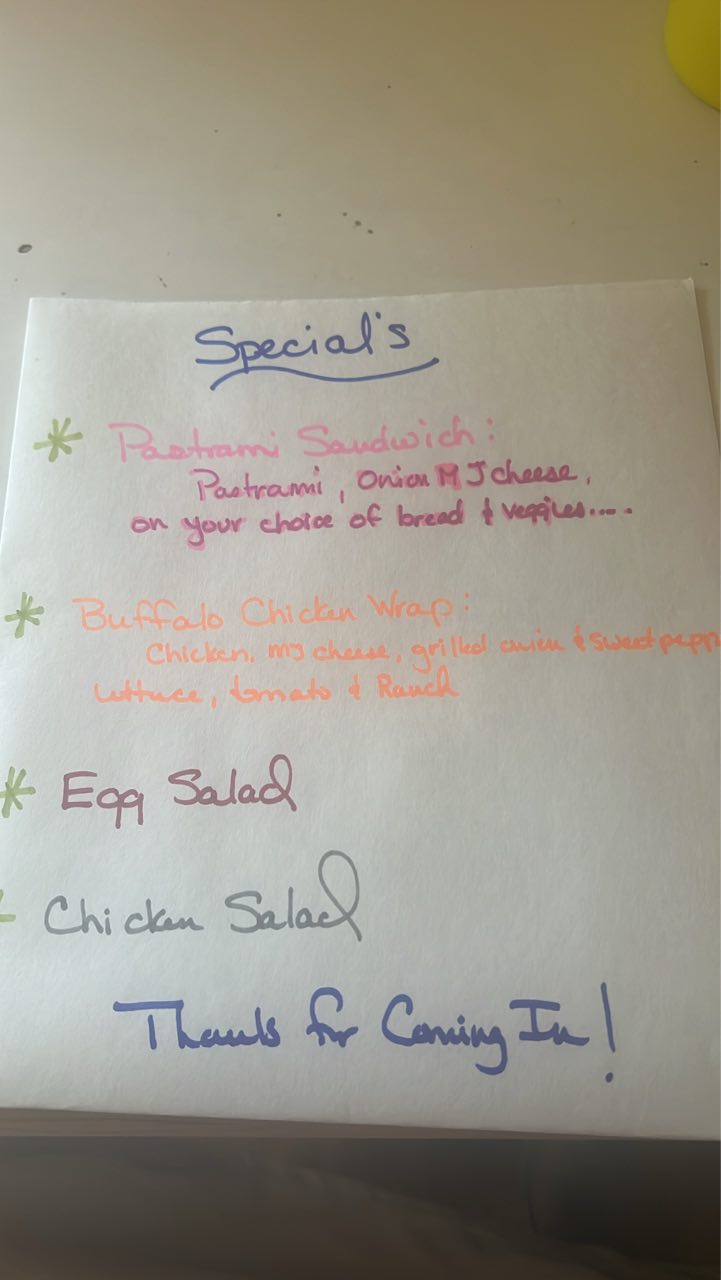 Special's
* Pastrami Sandwich:
Pastrami, Onion M J cheese,
on your choice of bread & veggies.....
* Buffalo Chicken Wrap:
Chicken, mj cheese, grilled onion & sweet pepp
lettuce, tomato & Ranch
* Egg Salad
Chicken Salad
Thanks for Coming In!